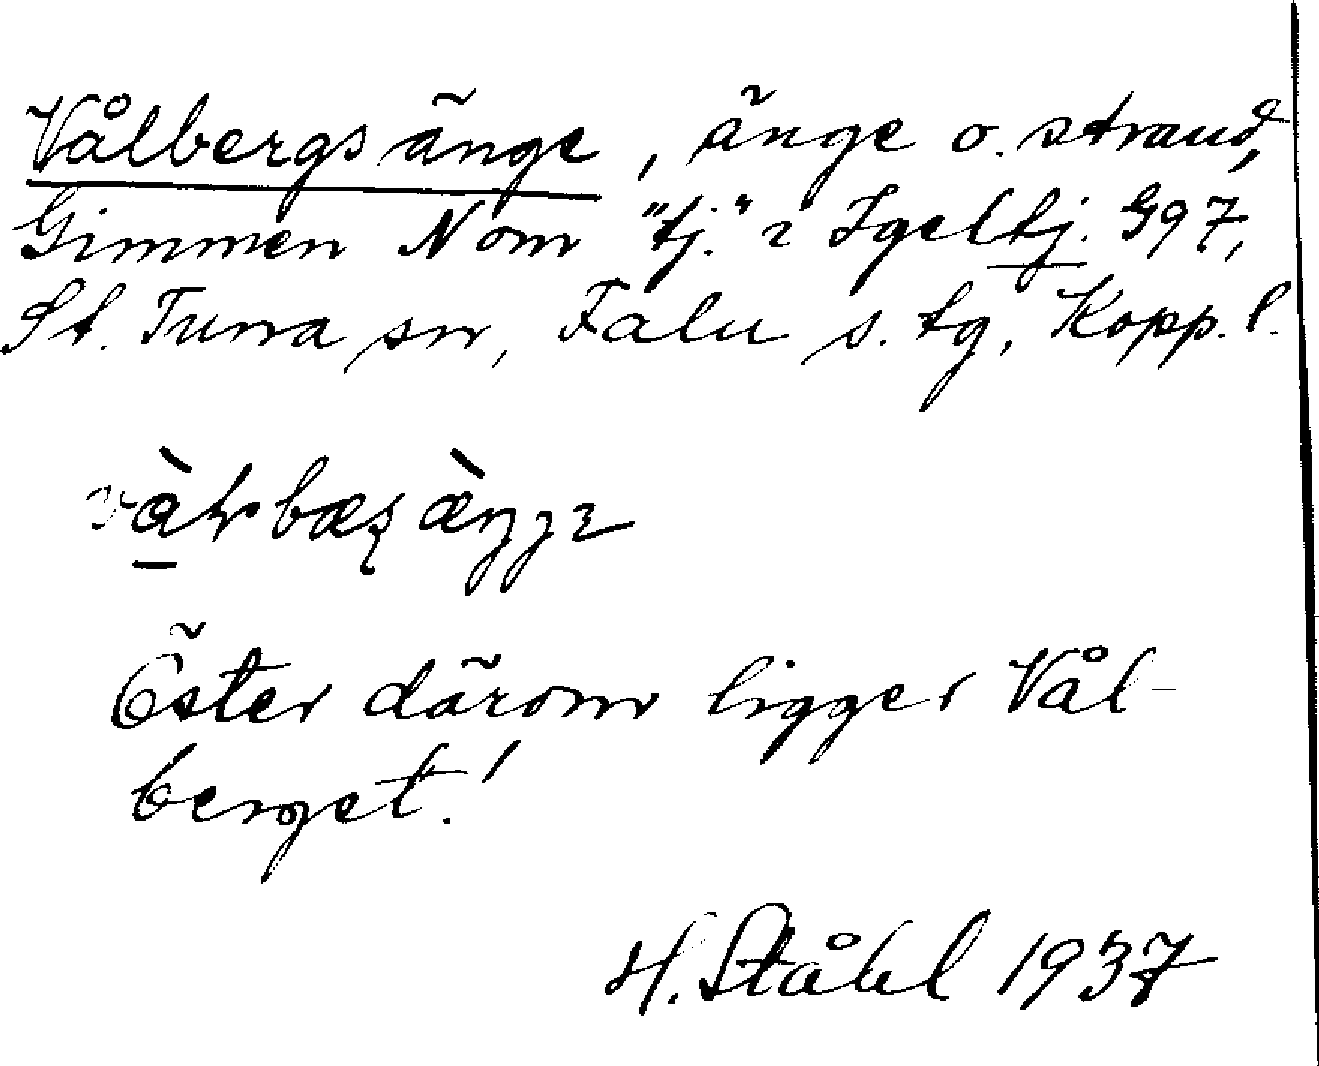 Vålbergsänge, änge o. strand,
Gimmen N om "tj." i Igeltj. G97,
St. Tuna sn, Falu s. tg, Kopp. l.
Öster därom ligger Vål-
berget!
H. Ståhl 1937